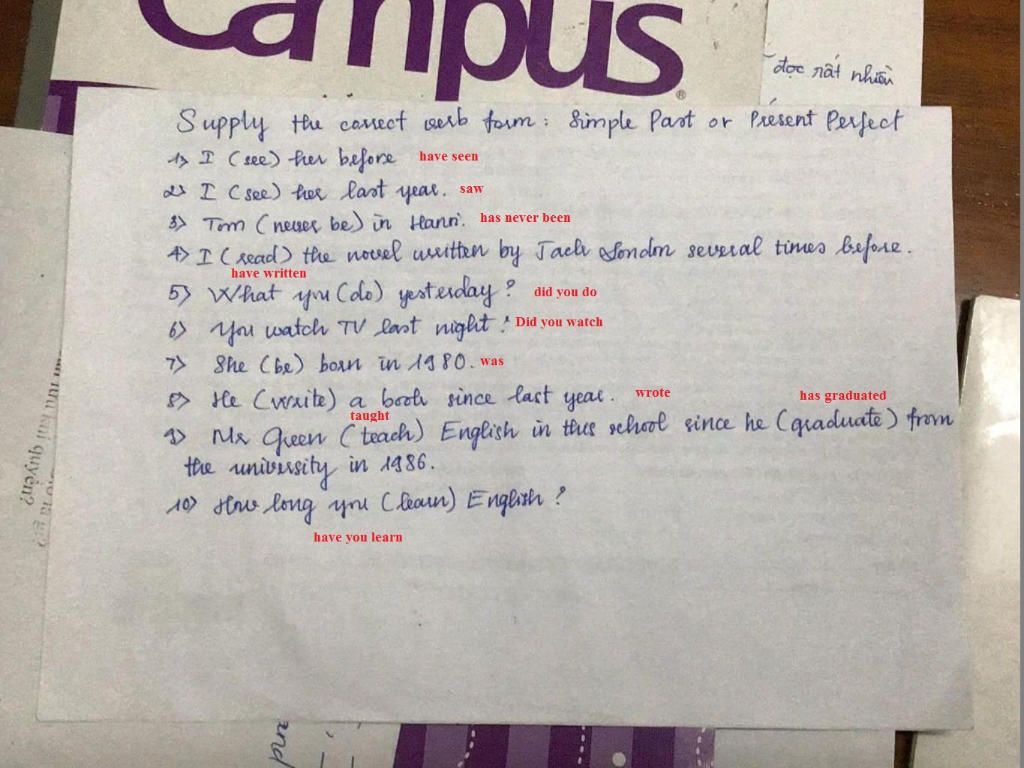 Campus®
đọc rất nhiều
Supply the correct verb form: Simple Past or Present Perfect
1) I (see) her before have seen
2) I (see) her last year. saw
3) Tom (never be) in Hanoi. has never been
4) I (read) the novel written by Jack London several times before.
have written
5) What you (do) yesterday? did you do
6) You watch TV last night? Did you watch
7) She (be) born in 1980. was
8) He (write) a book since last year. wrote has graduated
taught
9) Mr Green (teach) English in this school since he (graduate) from
the university in 1986.
10) How long you (learn) English?
have you learn
quyển?